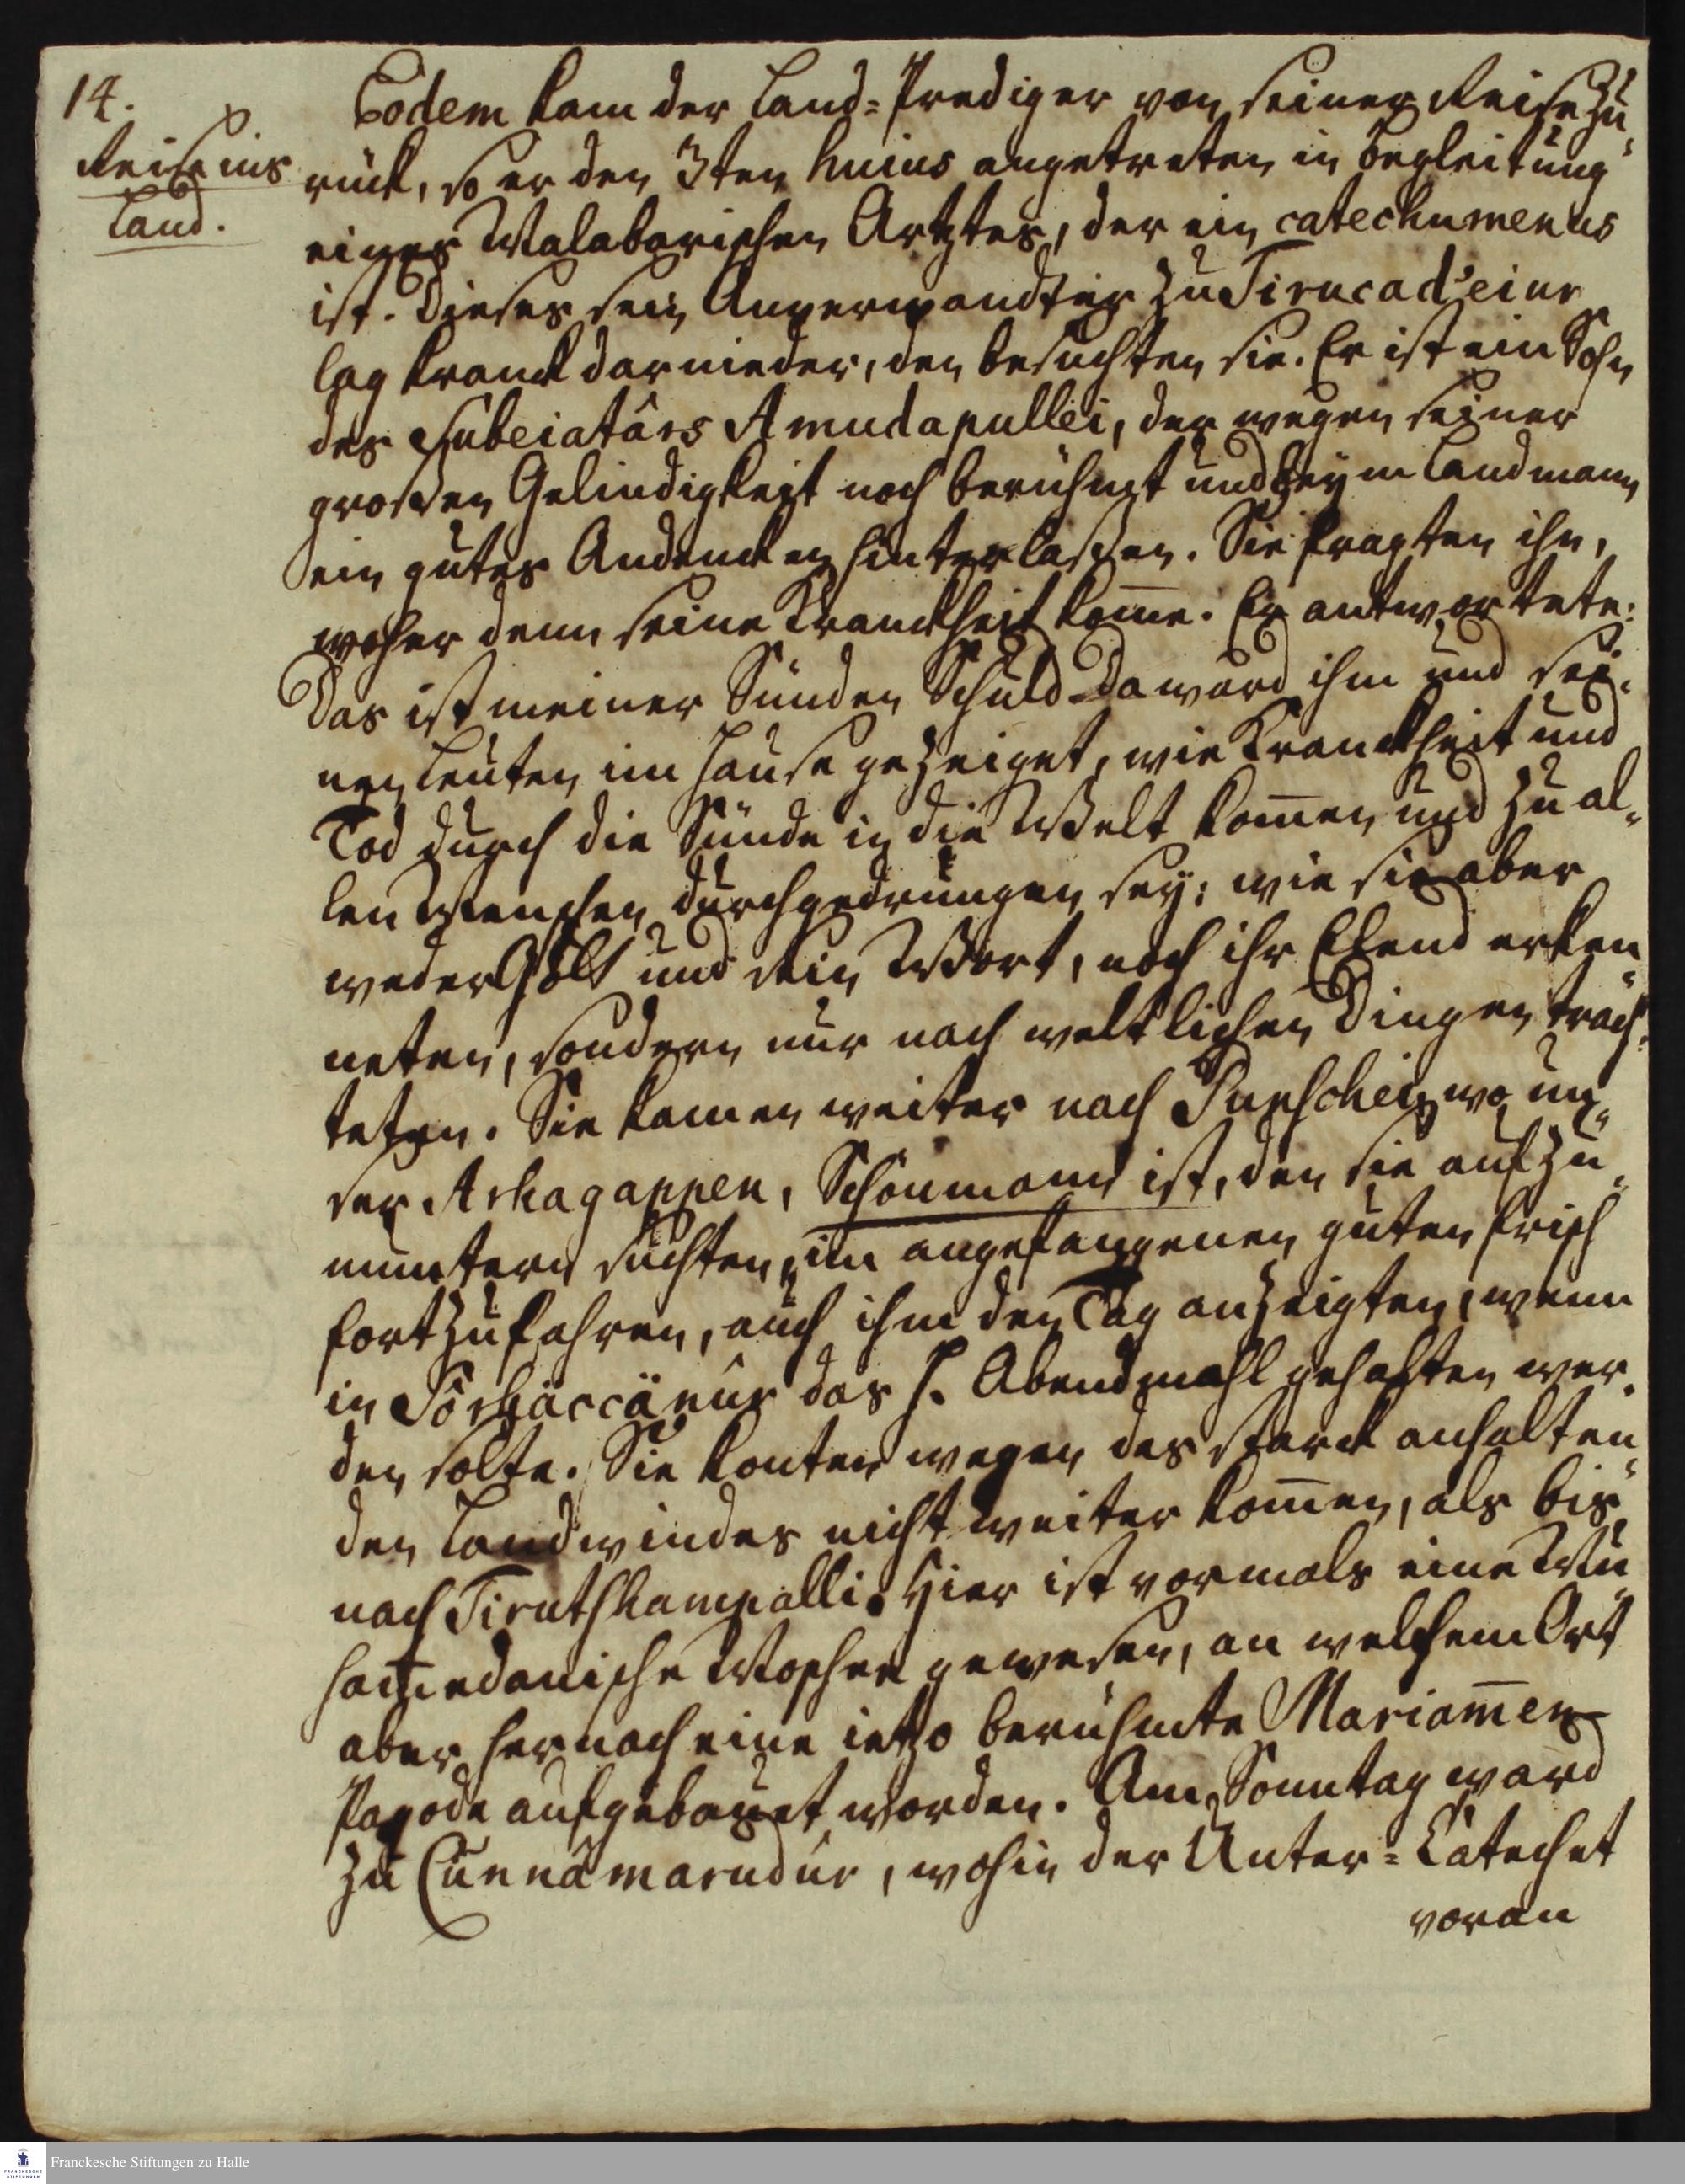 14.
Reise ins
Land.
Eodem kam der Land-Prediger von seiner Reise zu-
rück, so er den 3ten huius angetreten in Begleitung
eines Malabarischen Artztes, der ein catechumenus
ist. Dieses sein Anverwandter zu Tirucad'eiur
lag kranck darnieder, den besuchten sie. Er ist ein Sohn
des Subeiatârs Amudapullei, der wegen seiner
großen Gelindigkeit noch berühmt und beym Landmann
ein gutes Andencken hinterlaßen. Sie fragten ihn,
woher denn seine Kranckheit kom̄e. Er antwortete:
Das ist meiner Sünden Schuld. Da ward ihm und sei-
nen Leuten im Hause gezeiget, wie Kranckheit und
Tod durch die Sünde in die Welt kom̄en und zu al-
len Menschen durchgedrungen sey: wie sie aber
weder Gott und sein Wort, noch ihr Elend erken-
neten, sondern nur nach weltlichen Dingen trach-
teten. Sie kamen weiter nach wo un-
ser Arhagappen, Schönmann ist, den sie aufzu-
muntern suchten, im angefangenen guten frisch
fortzufahren, auch ihm den Tag anzeigten, wenn
in das H. Abendmahl gehalten wer-
den solte. Sie konten wegen des starck anhalten-
den Landwindes nicht weiter kom̄en, als bis
nach Hier ist vormals eine Mu-
ham̄edanische Moschee gewesen, an welchem Ort
aber hernach eine ietzo berühmte Mariam̄en
Pagode aufgebauet worden. Am Sonntag ward
zu Cunnâmarudúr, wohin der Unter-Catechet
voran
Franckesche Stiftungen zu Halle